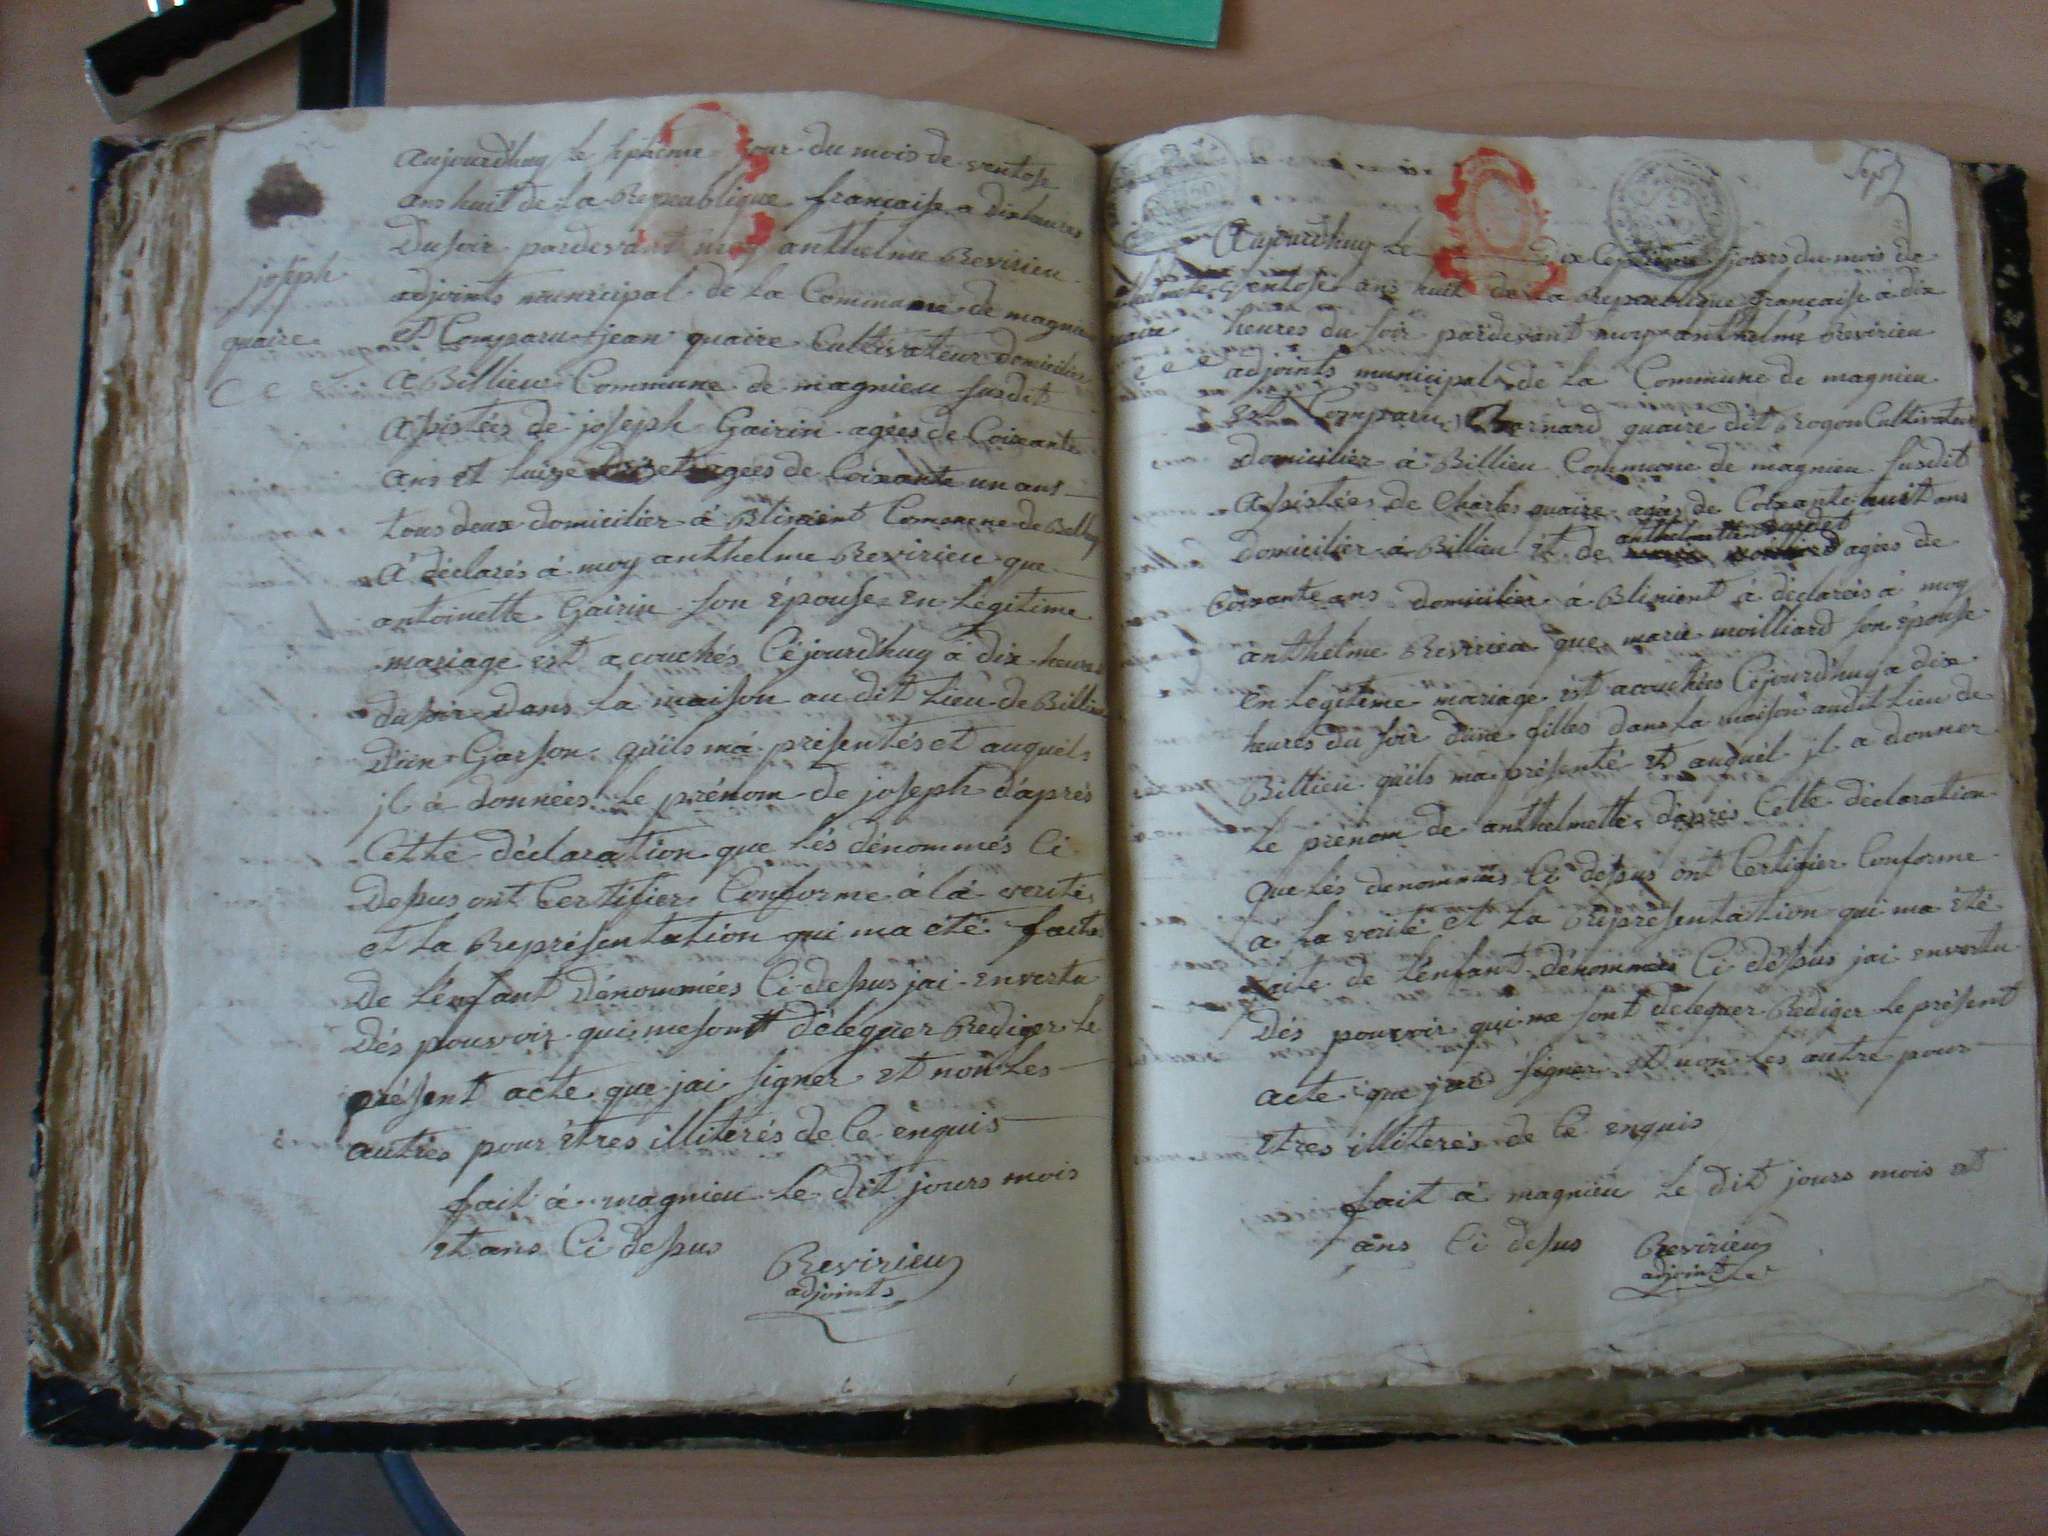 Aujourd'huy le septieme jour du mois de ventose
ans huit de la Republique francaise a dix heures
Du soir pardevant moy anthelme Revirieu
joseph
adjoints municipal de la Commune de magnieu
quaire
Et Comparu jean quaire Cultivateur domicilier
à Billieu Commune de magnieu susdit
Assistées de joseph Gairin agées de Coixante
ans et luize agées de Coixante un ans
tous deux domicilier à Blinient Commune de Belley
A déclarés à moy anthelme Revirieu que
antoinette Gairin son épouse en légitime
mariage est acouchés Céjourd'huy à dix heures
du soir dans la maison au dit lieu de Billieu
D'ùn Garson qu'ils m'a présentés et auquels
jl à données le prénom de joseph d'áprés
Cette déclaration que lés dénommés Ci
Dessus ont Certifier Conforme à la verité
et la Représentation qui ma été faite
De l'énfant Dénommées Ci dessus jai en vertu
Dés pouvoir qui me sont déleguer Rediger le
présent acte que jai signer et non les
autrés pour étres illiterés de Ce enquis
fait à magnieu le dit jours mois
et ans Ci dessus
Revirieu
adjoints
Sept
Aujourd'huy le dix septieme jours du mois de
ventose ans huit de la Republique francaise à dix
quaire
heures du soir pardevant moy anthelme Revirieu
adjoints municipal de la Commune de magnieu
Est Comparu Bernard quaire dit Rogon Cultivateur
domicilier à Billieu Commune de magnieu susdit
Assistées de Charles quaire agés de Coixante huit ans
domicilier à Billieu et de anthelmette agées de
Coixante ans domicilier à Blinient à declarés à moy
anthelme Revirieu que marie moilliard son épouse
en légitéme mariage est acouchées Céjourd'huy a dix
heures du soir d'une filles dans la maison audit lieu de
Billieu qu'ils ma présenté et auquél jl a donner
le prénom de anthelmette d'aprés Cette déclaration
que lés denommées Ci dessus ont Certifier Conforme
a la verité et la Représentation qui ma été
faite de l'énfant dénommées Ci déssus jai en vertu
Dés pouvoir qui me sont deleguer Rediger le présent
acte que jai signer et non les autre pour
étres illiterés de Ce enquis
fait à magnieu le dit jours mois et
ans Ci dessus
Revirieu
adjoint